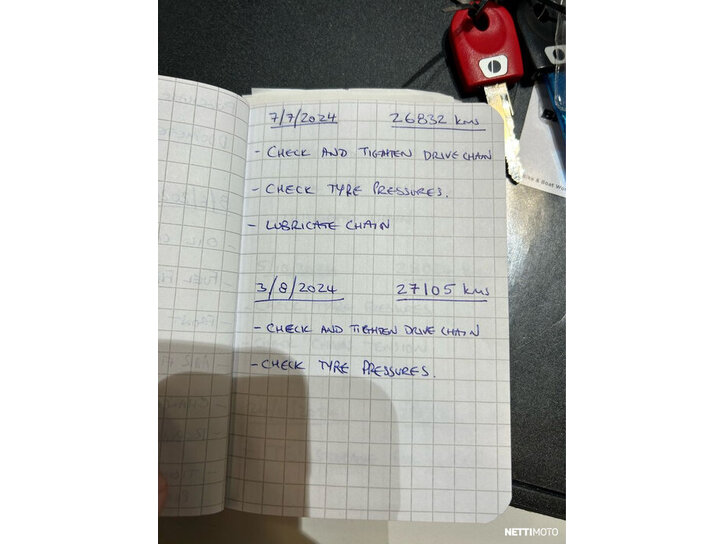 7/7/2024 26832 kms
- CHECK AND TIGHTEN DRIVE CHAIN
- CHECK TYRE PRESSURES.
- LUBRICATE CHAIN
3/8/2024 27105 kms
- CHECK AND TIGHTEN DRIVE CHAIN
- CHECK TYRE PRESSURES.
& Boat
NETTIMOTO